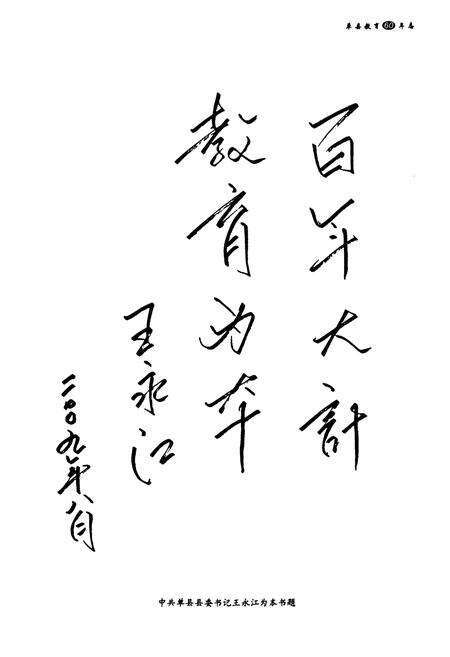 单县教育60年志
百年大计
教育为本
王永江
二00九年八月
中共单县县委书记王永江为本书题